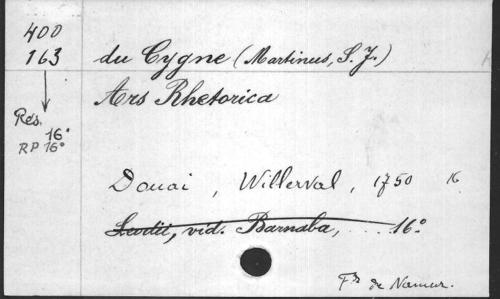 400
163
du Cygne (Martinus, S. J.)
Ars Rhetorica
Rés.
16°
RP 16°
Douai, Willerval, 1750 16
Leodii, vid. Barnaba, ... 16°
Fds de Namur.